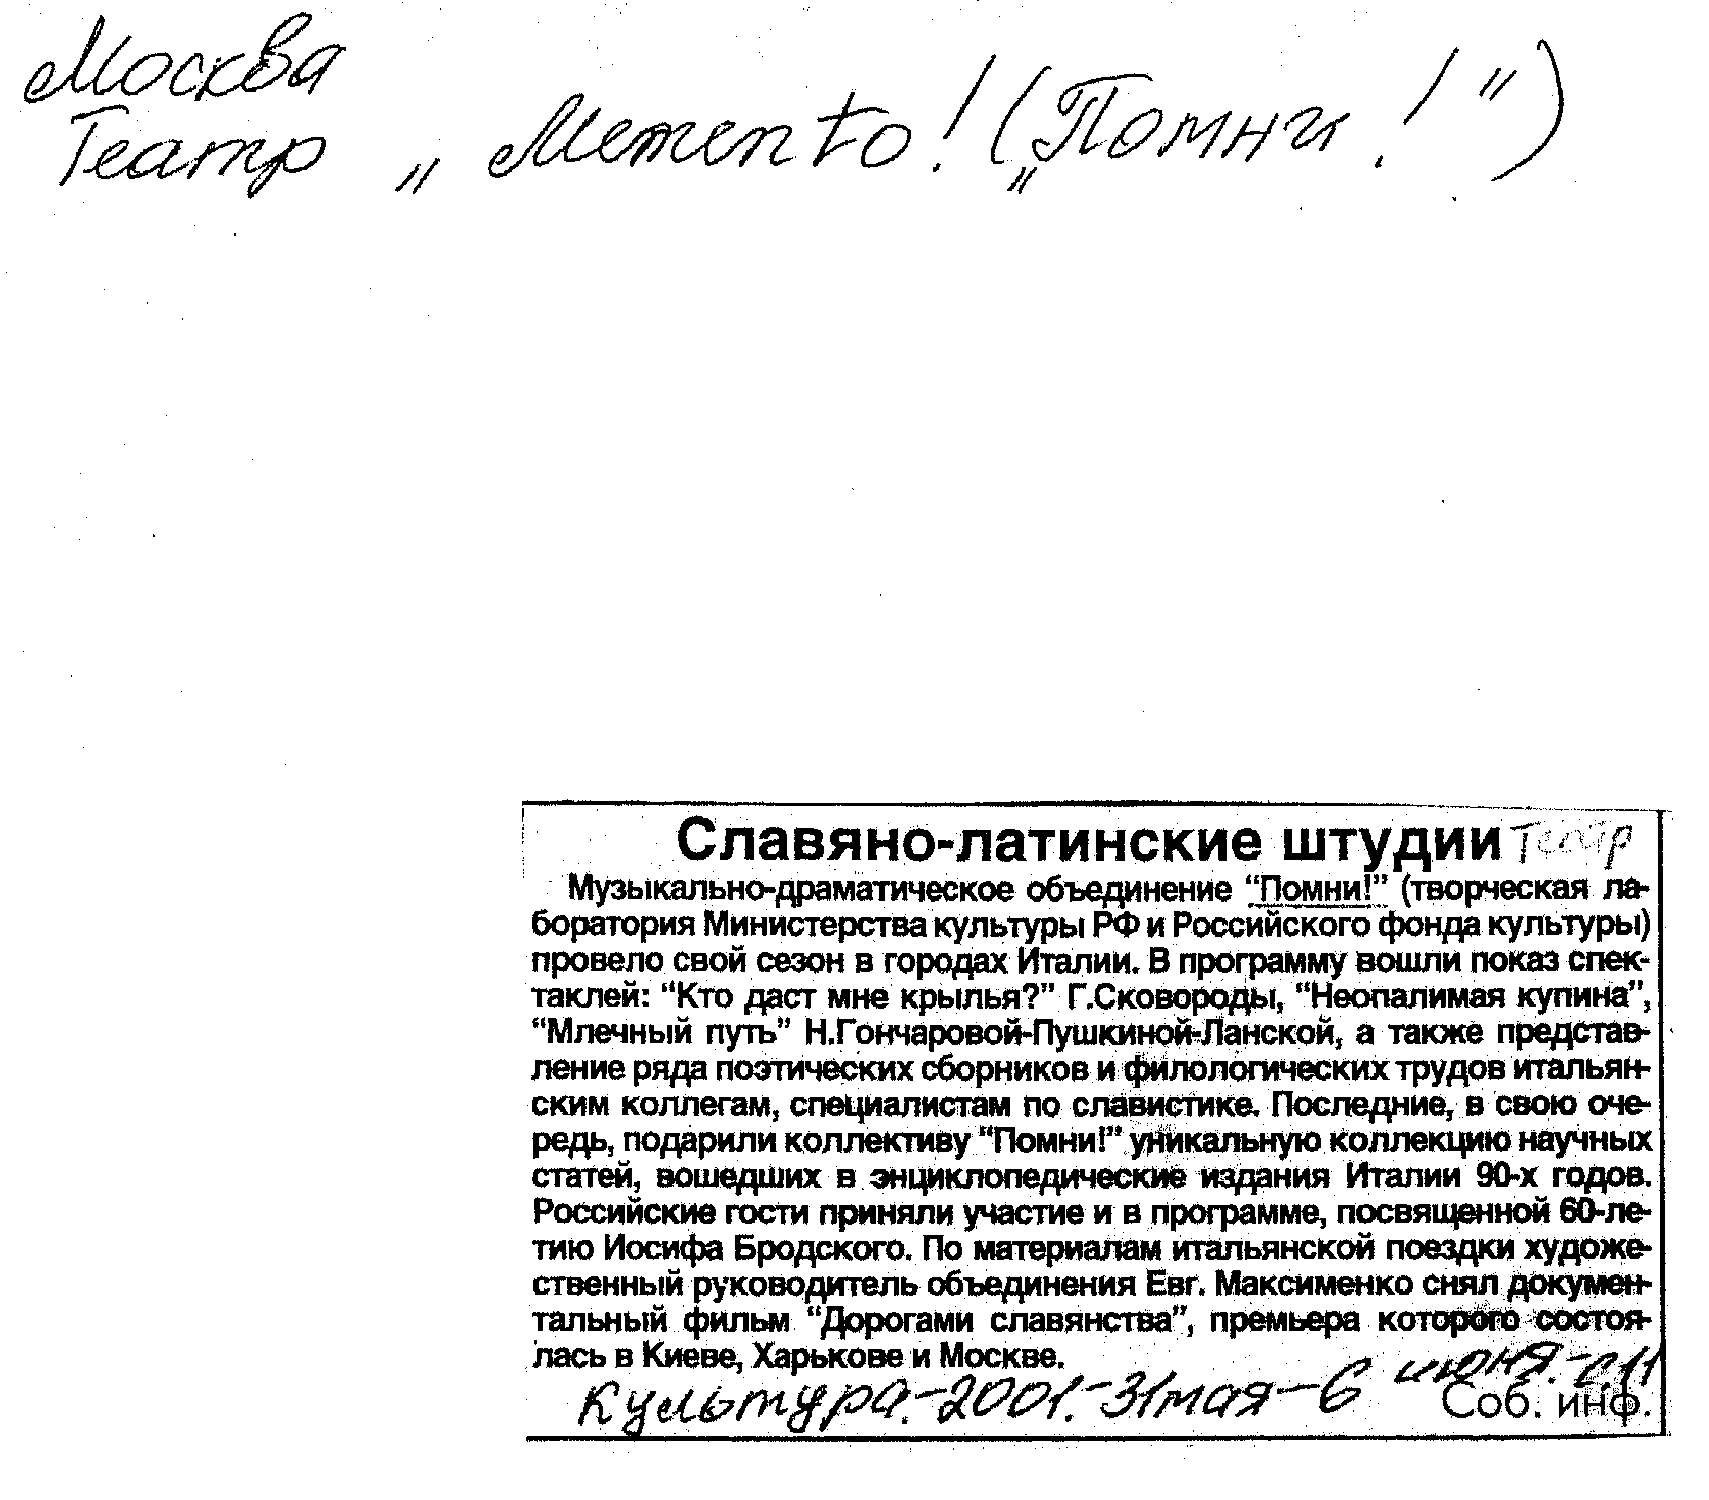 Москва
Театр „Memento! („Помни!")
Славяно-латинские штудии Театр
Музыкально-драматическое объединение "Помни!" (творческая ла-
боратория Министерства культуры РФ и Российского фонда культуры)
провело свой сезон в городах Италии. В программу вошли показ спек-
таклей: "Кто даст мне крылья?" Г.Сковороды, "Неопалимая купина",
"Млечный путь" Н.Гончаровой-Пушкиной-Ланской, а также представ-
ление ряда поэтических сборников и филологических трудов итальян-
ским коллегам, специалистам по славистике. Последние, в свою оче-
редь, подарили коллективу "Помни!" уникальную коллекцию научных
статей, вошедших в энциклопедические издания Италии 90-х годов.
Российские гости приняли участие и в программе, посвященной 60-ле-
тию Иосифа Бродского. По материалам итальянской поездки художе-
ственный руководитель объединения Евг. Максименко снял докумен-
тальный фильм "Дорогами славянства", премьера которого состоя-
лась в Киеве, Харькове и Москве.
Культура.-2001.-31мая-6 июня.-с11
Соб. инф.